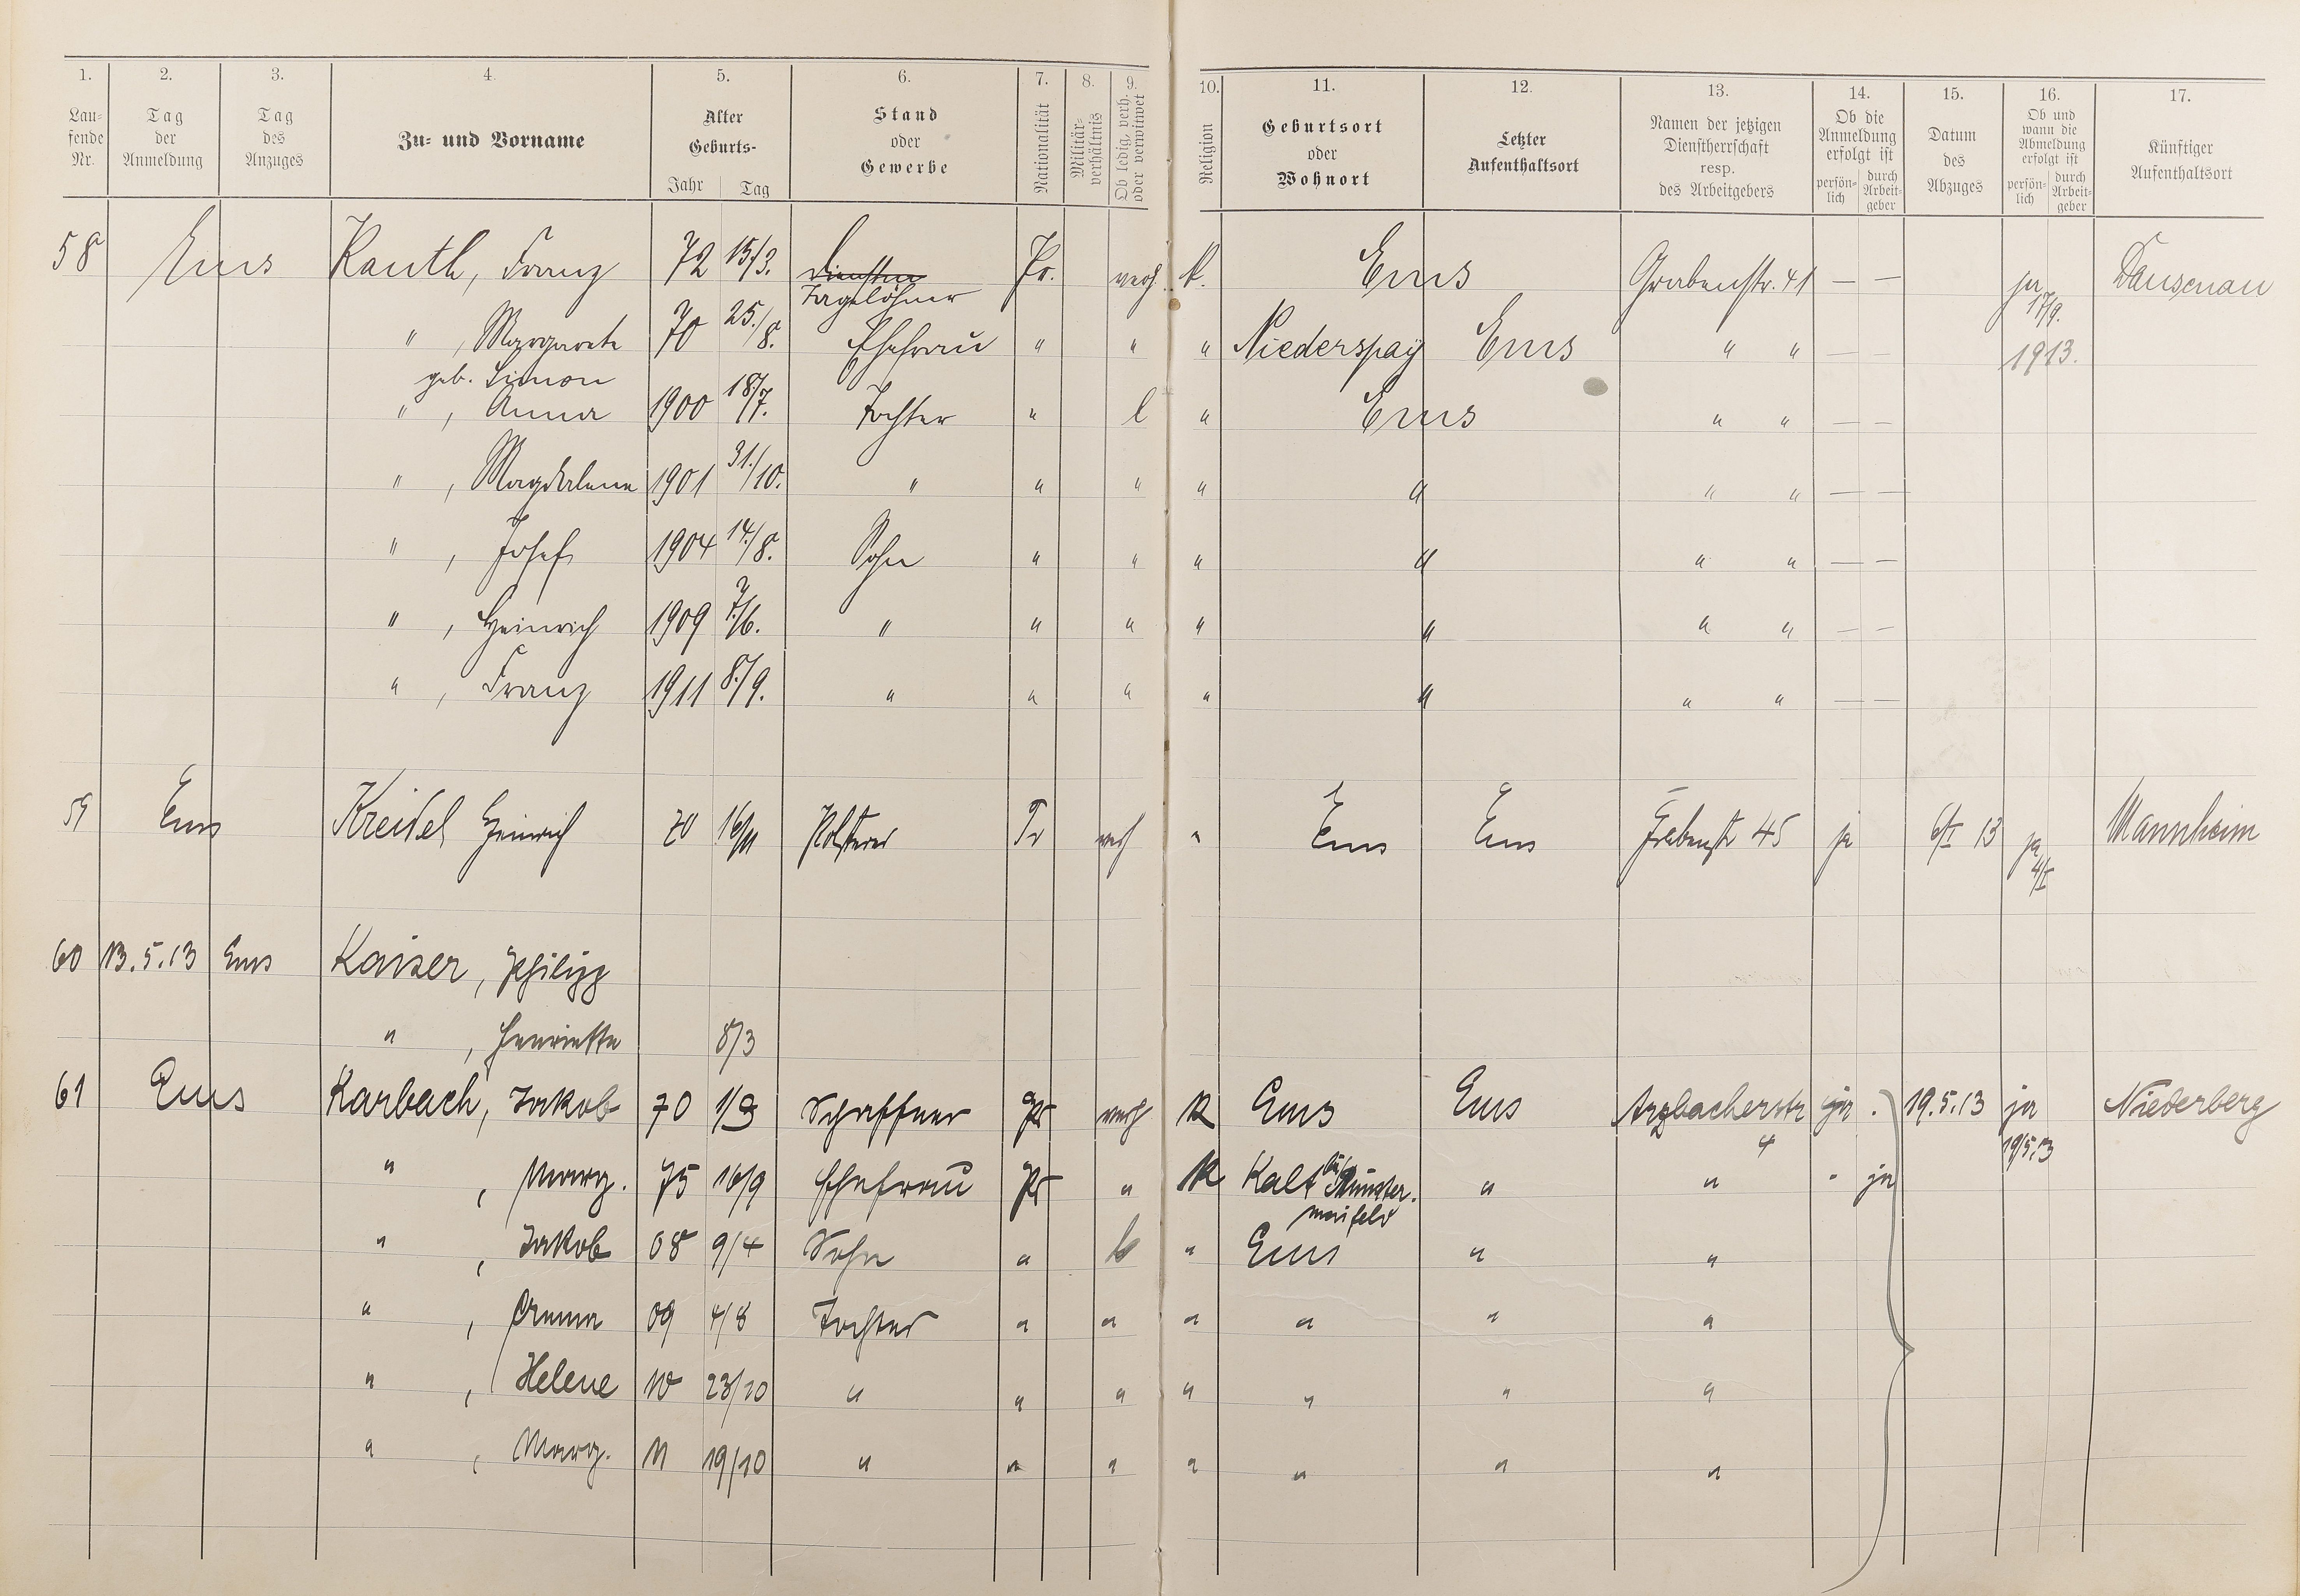 1. 2. 3. 4. 5. 6. 7. 8. 9. 10. 11. 12. 13. 14. 15. 16. 17.
Lau-
fende
Nr.
Tag
der
Anmeldung
Tag
des
Anzuges
Zu- und Vorname
Alter
Geburts-
Jahr Tag
Stand
oder
Gewerbe
Nationalität
Militär-
verhältnis
Ob ledig, verh.
oder verwitwet
Religion
Geburtsort
oder
Wohnort
Letzter
Aufenthaltsort
Namen der jetzigen
Dienstherrschaft
resp.
des Arbeitgebers
Ob die
Anmeldung
erfolgt ist
persön-
lich
durch
Arbeit-
geber
Datum
des
Abzuges
Ob und
wann die
Abmeldung
erfolgt ist
persön-
lich
durch
Arbeit-
geber
Künftiger
Aufenthaltsort
58 Ems Kauth, Franz 72 15/3. Pr. verh. K. Ems Grabenstr. 41 — — ja Dausenau
Tagelöhner 17/9.
" , Margarete 70 25./8. Ehefrau " " " Niederspay Ems " " — — 1913.
geb. Simon
" , Anna 1900 18./7. Tochter " l " Ems " " — —
" , Magdalena 1901 31./10. " " " " " " " — —
" , Josef 1904 14./8. Sohn " " " " " " — —
" , Heinrich 1909 7./6. " " " " " " " — —
" , Franz 1911 8./9. " " " " " " " — —
59 Ems Kreidel Heinrich 70 16/11 Polsterer Pr verh " Ems Ems Grabenstr 45 ja 6/I 13 ja Mannheim
4/I
60 13.5.13 Ems Kaiser, Philipp
" , Henriette 8/3
61 Ems Karbach, Jakob 70 1/3 Schaffner Pr verh K Ems Ems Arzbacherstr ja . 19.5.13 ja Niederberg
4 19/5.13
" , Marg. 75 16/9 Ehefrau Pr " K Kalt b/ Münster- " " - ja
maifeld
" , Jakob 08 9/4 Sohn " l " Ems " "
" , Anna 09 4/8 Tochter " " " " " "
" , Helene 10 23/10 " " " " " " "
" , Marg. 11 19/10 " " " " " " "